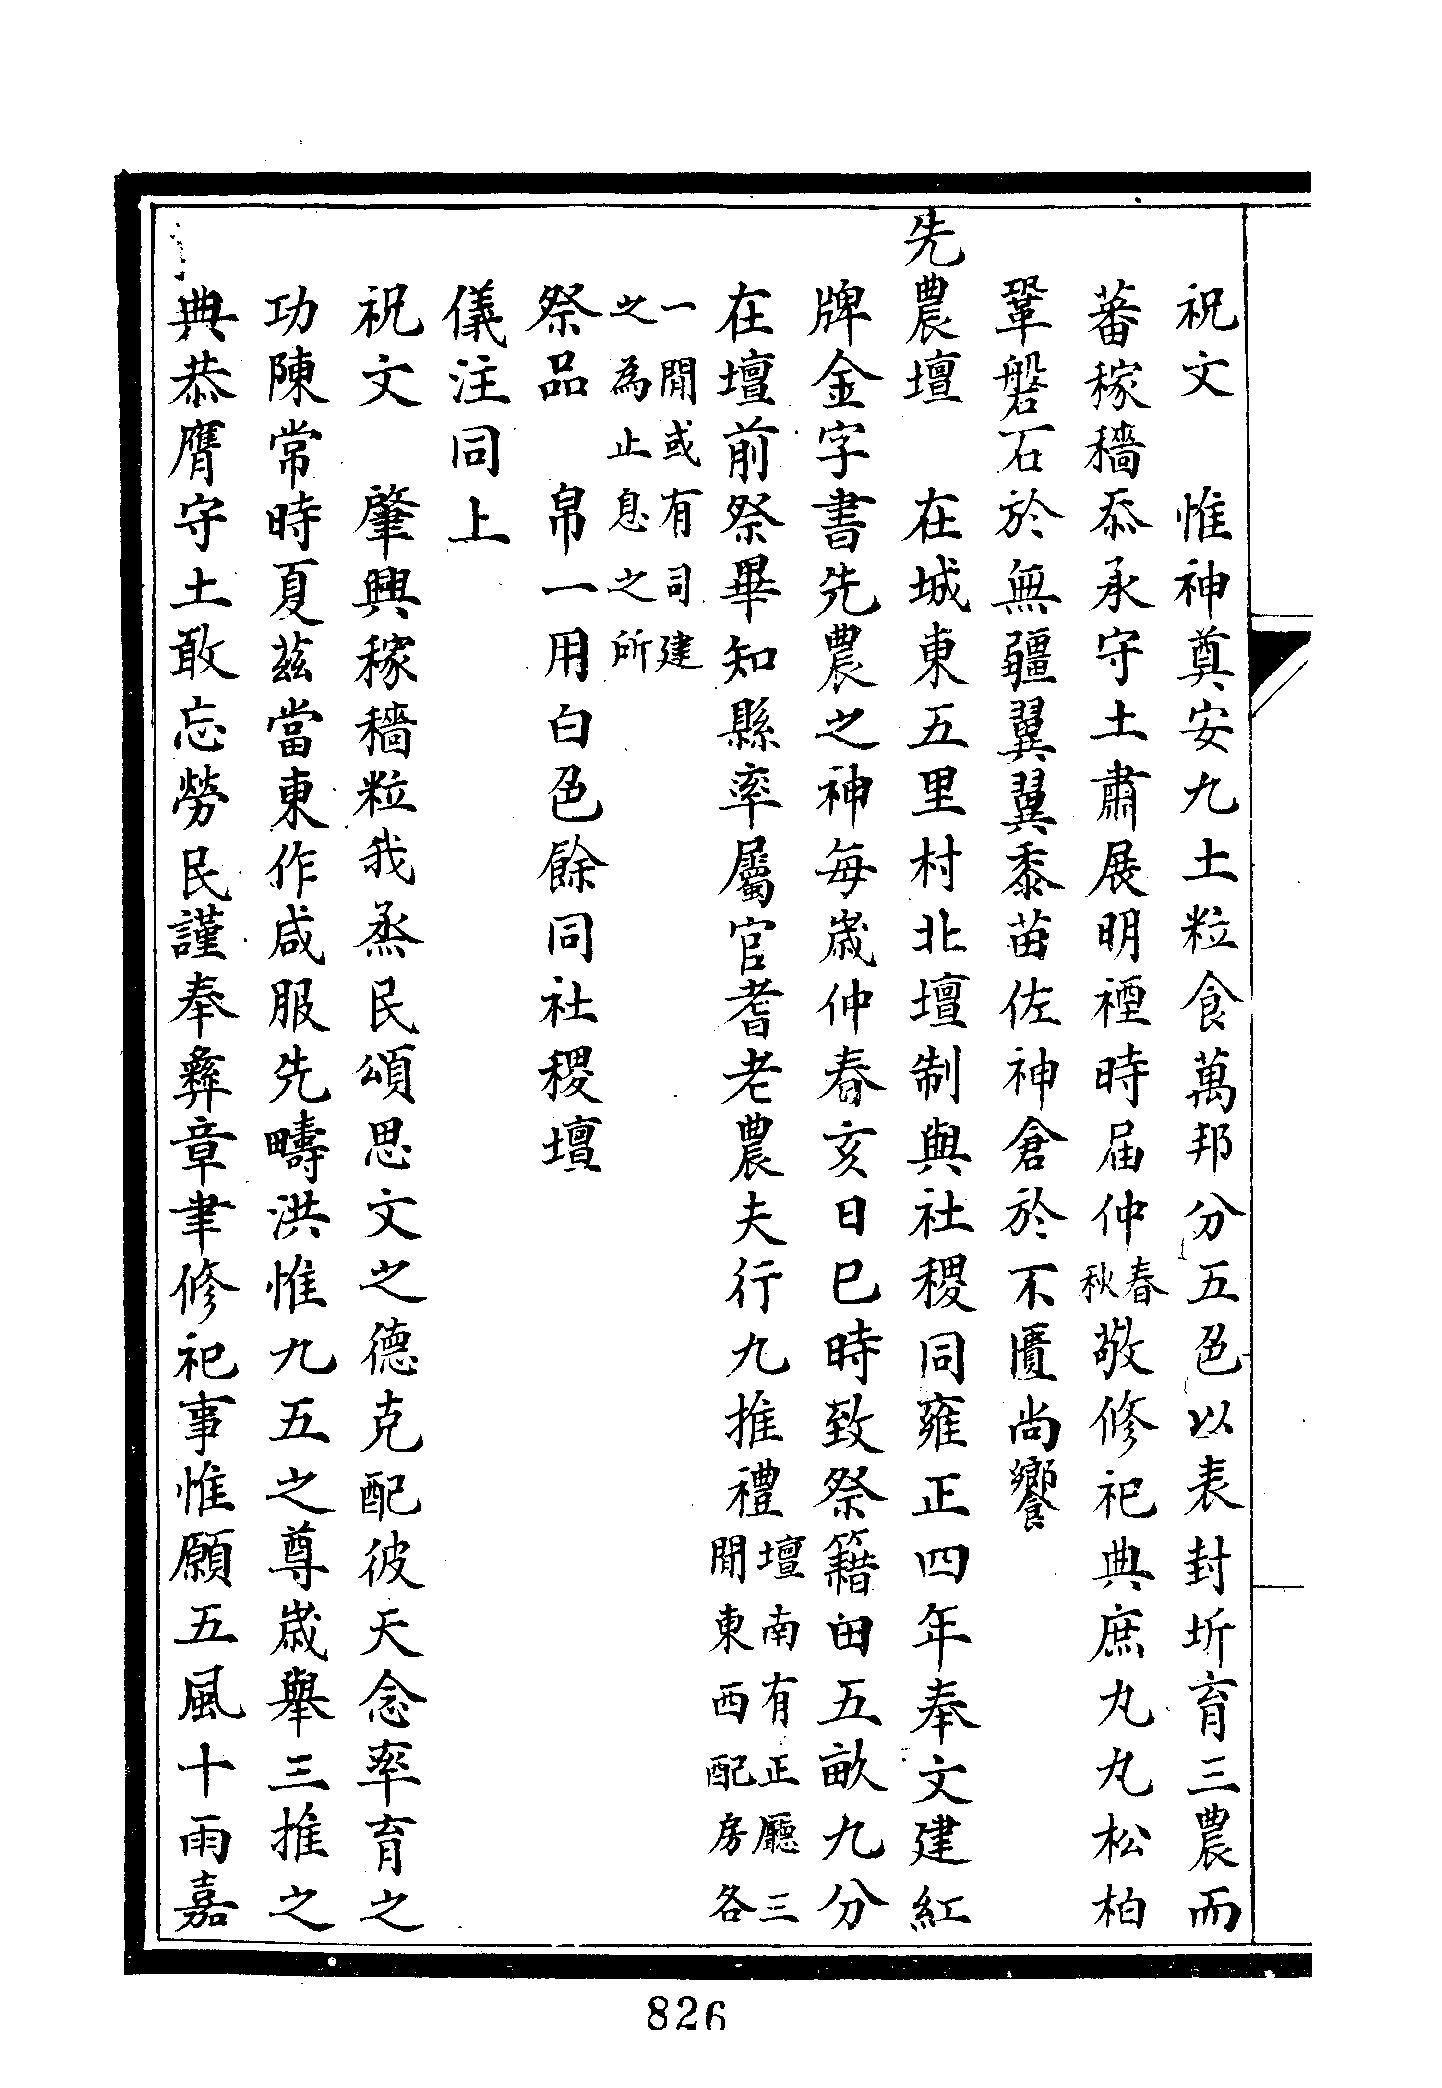 祝文　惟神奠安九土粒食萬邦分五色以表封圻育三農而
蕃稼穡忝承守土肅展明禋時屆仲春秋敬修祀典庶丸丸松柏
鞏磐石於無疆翼翼黍苗佐神倉於不匱尚饗
先農壇　在城東五里村北壇制與社稷同雍正四年奉文建紅
牌金字書先農之神每歲仲春亥日巳時致祭籍田五畝九分
在壇前祭畢知縣率屬官耆老農夫行九推禮壇南有正廳三
間東西配房各
一間或有司建
之為止息之所
祭品　帛一用白色餘同社稷壇
儀注同上
祝文　肇興稼穡粒我烝民頌思文之德克配彼天念率育之
功陳常時夏茲當東作咸服先疇洪惟九五之尊歲舉三推之
典恭膺守土敢忘勞民謹奉彝章聿修祀事惟願五風十雨嘉
826